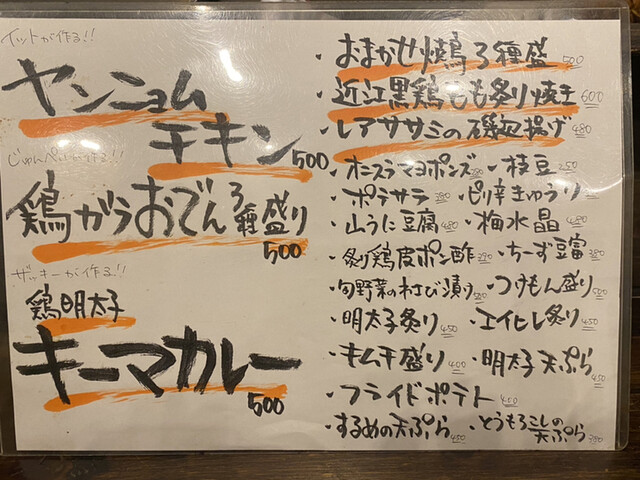 イットが作る!!
ヤンニョム
チキン 500
じゅんぺいが作る!!
鶏がらおでん3種盛り
500
ザッキーが作る!!
鶏明太子
キーマカレー
500
・おまかせ焼鶏3種盛 500
・近江黒鶏もも炙り焼き 600
・レアササミの磯辺揚げ 480
・オニスラマヨポンズ ・枝豆 250
・ポテサラ 380 ・ピリ辛きゅうり
・山うに豆腐 480 ・梅水晶 480
・炙り鶏皮ポン酢 390 ・ちーず豆富 380
・旬野菜のわさび漬け ・つけもん盛り 500
・明太子炙り 450 ・エイヒレ炙り 450
・キムチ盛り 400 ・明太子天ぷら 450
・フライドポテト 450
・するめの天ぷら 450 ・とうもろこしの天ぷら 380